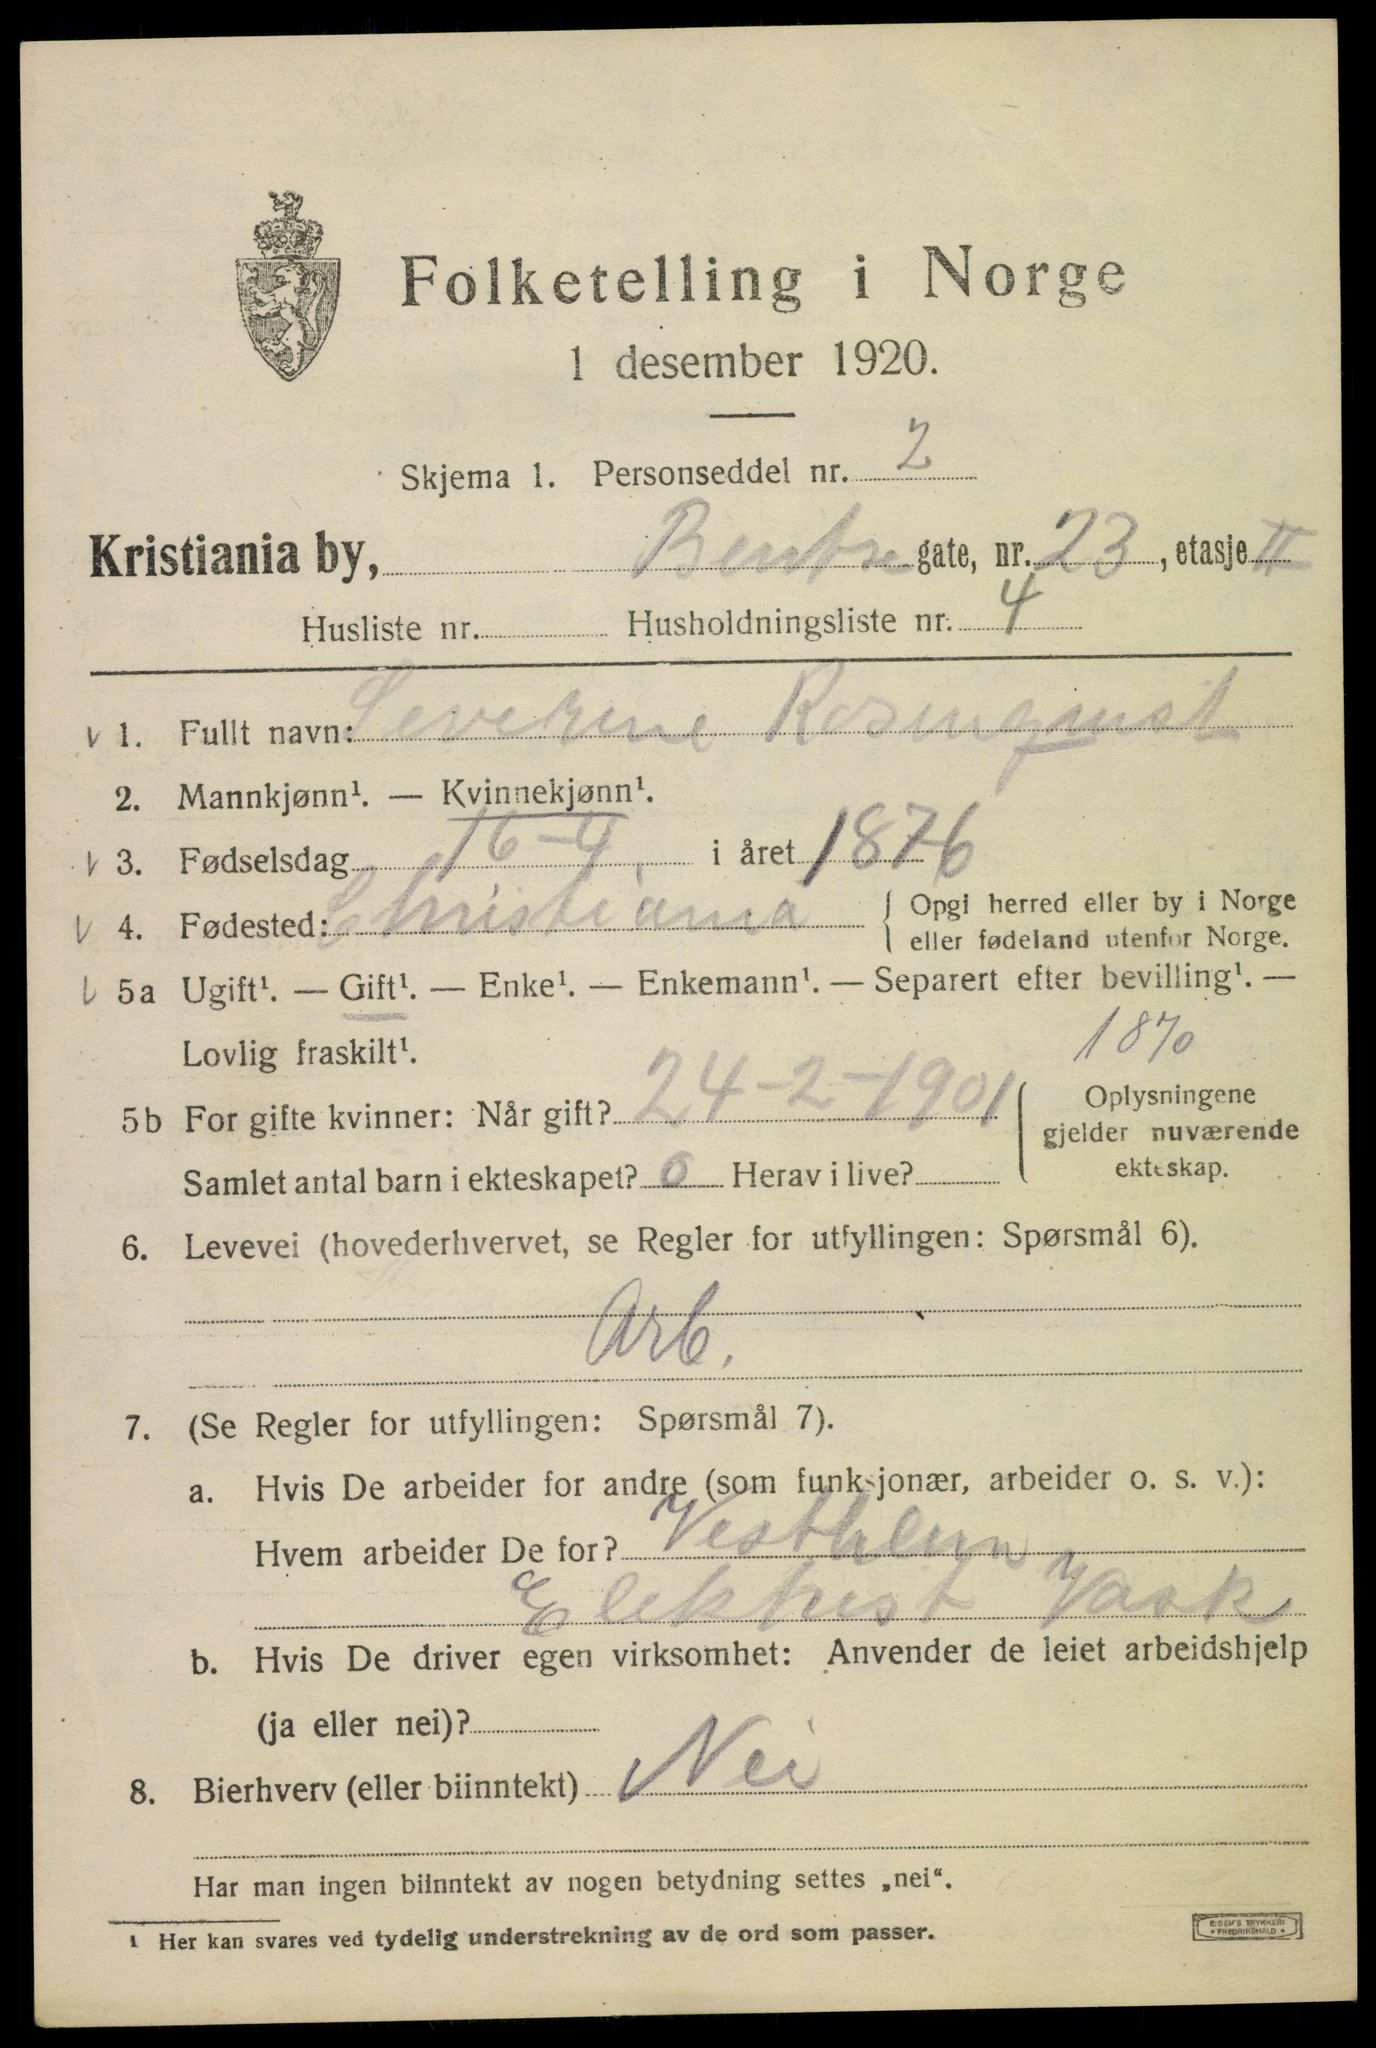 Folketelling i Norge
1 desember 1920.
Skjema 1. Personseddel nr. 2
Kristiania by, Bentse gate, nr. 23, etasje II
Husliste nr. Husholdningsliste nr. 4
v 1. Fullt navn: Severine Rosenqvist
2. Mannkjønn¹. — Kvinnekjønn¹.
v 3. Fødselsdag 16-4 i året 1876
v 4. Fødested: Christiania { Opgi herred eller by i Norge
eller fødeland utenfor Norge.
v 5a Ugift¹. — Gift¹. — Enke¹. — Enkemann¹. — Separert efter bevilling¹. —
Lovlig fraskilt¹. 1870
5b For gifte kvinner: Når gift? 24-2-1901 { Oplysningene
gjelder nuværende
ekteskap.
Samlet antal barn i ekteskapet? 0 Herav i live?
6. Levevei (hovederhvervet, se Regler for utfyllingen: Spørsmål 6).
Arb.
7. (Se Regler for utfyllingen: Spørsmål 7).
a. Hvis De arbeider for andre (som funksjonær, arbeider o. s. v.):
Hvem arbeider De for? Vesthem
Elektrist Vask
b. Hvis De driver egen virksomhet: Anvender de leiet arbeidshjelp
(ja eller nei)?
8. Bierhverv (eller biinntekt) Nei
Har man ingen biinntekt av nogen betydning settes „nei“.
¹ Her kan svares ved tydelig understrekning av de ord som passer.
E. SEM'S TRYKKERI
• FREDRIKSHALD •